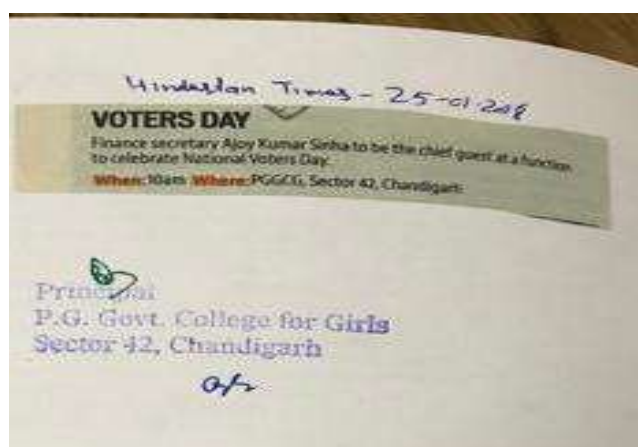 Hindustan Times - 25-01-2018
VOTERS DAY
Finance secretary Ajoy Kumar Sinha to be the chief guest at a function
to celebrate National Voters Day.
When: 10am Where: PGGCG, Sector 42, Chandigarh
Principal
P.G. Govt. College for Girls
Sector 42, Chandigarh